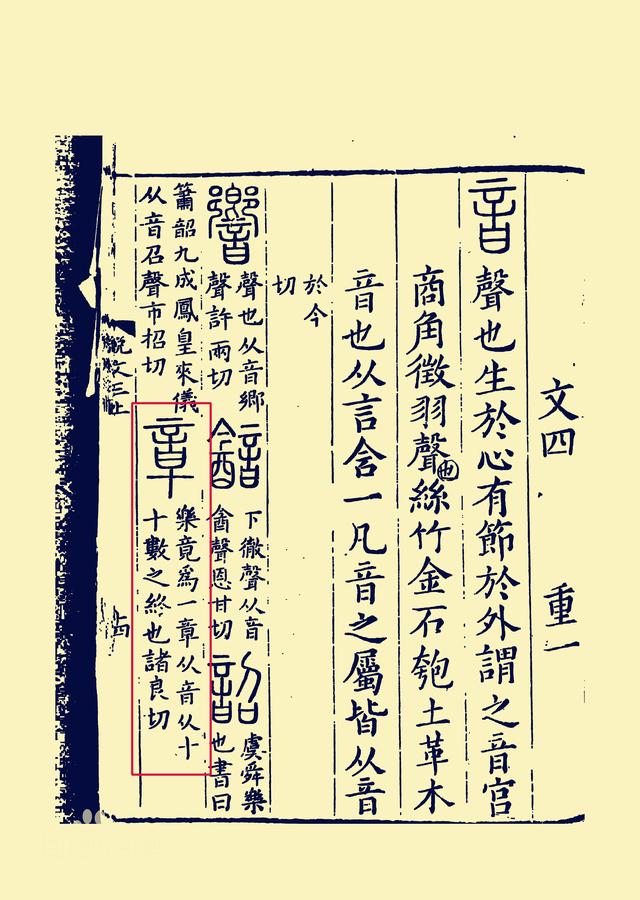 文四 重一
音 聲也生於心有節於外謂之音宮
商角徵羽聲也絲竹金石匏土革木
音也从言含一凡音之屬皆从音
於今
切
響 聲也从音鄉
聲許兩切
韽 下徹聲从音
酓聲恩甘切
韶 虞舜樂
也書曰
簫韶九成鳳皇來儀
从音召聲市招切
章 樂竟爲一章从音从十
十數之終也諸良切
說文三上